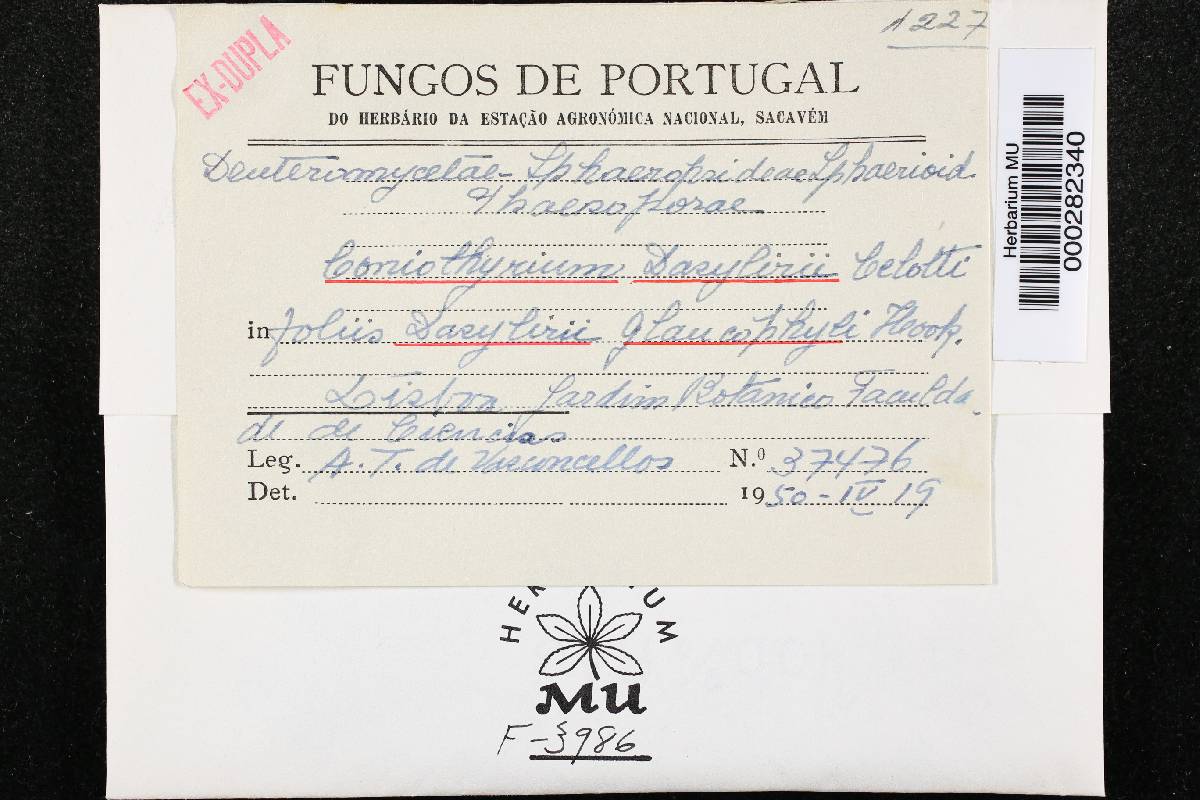 1227
EX-DUPLA
FUNGOS DE PORTUGAL
DO HERBÁRIO DA ESTAÇÃO AGRONÓMICA NACIONAL, SACAVÉM
Deuteromycetae - Sphaeropsideae Sphaerioid.
Phaeosporae
Coniothyrium Dasylirii Celotti
in foliis Dasylirii glaucophyli Hook.
Lisboa Jardim Botânico Faculda-
de de Ciencias
Leg. A. T. de Vasconcellos N.º 37476
Det. 1950-IV 19
Herbarium MU
000282340
MU
F-3986